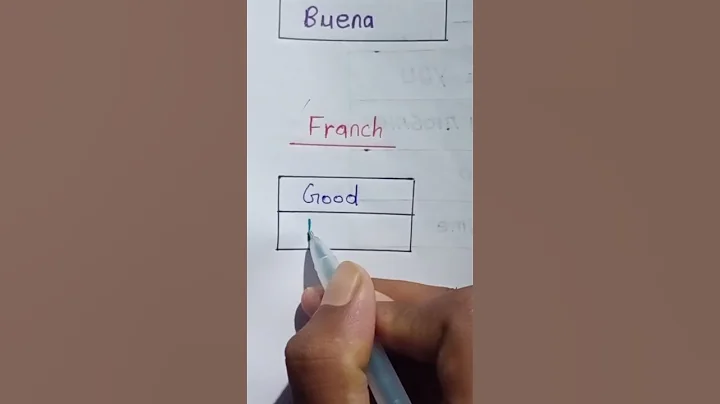 Buena
Franch
Good